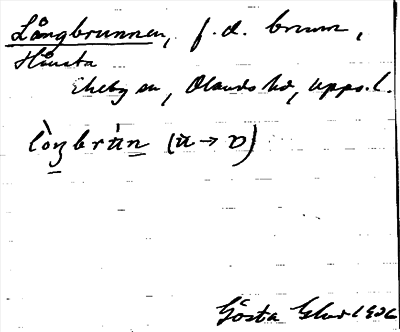 Långbrunnen, f. d. brunn,
Håusta
Ekeby sn, Olands hd, Upps. l.
lòŋbrùn (u → ʋ)
Gösta 1926